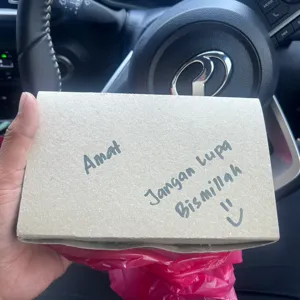 Amat
Jangan lupa
Bismillah